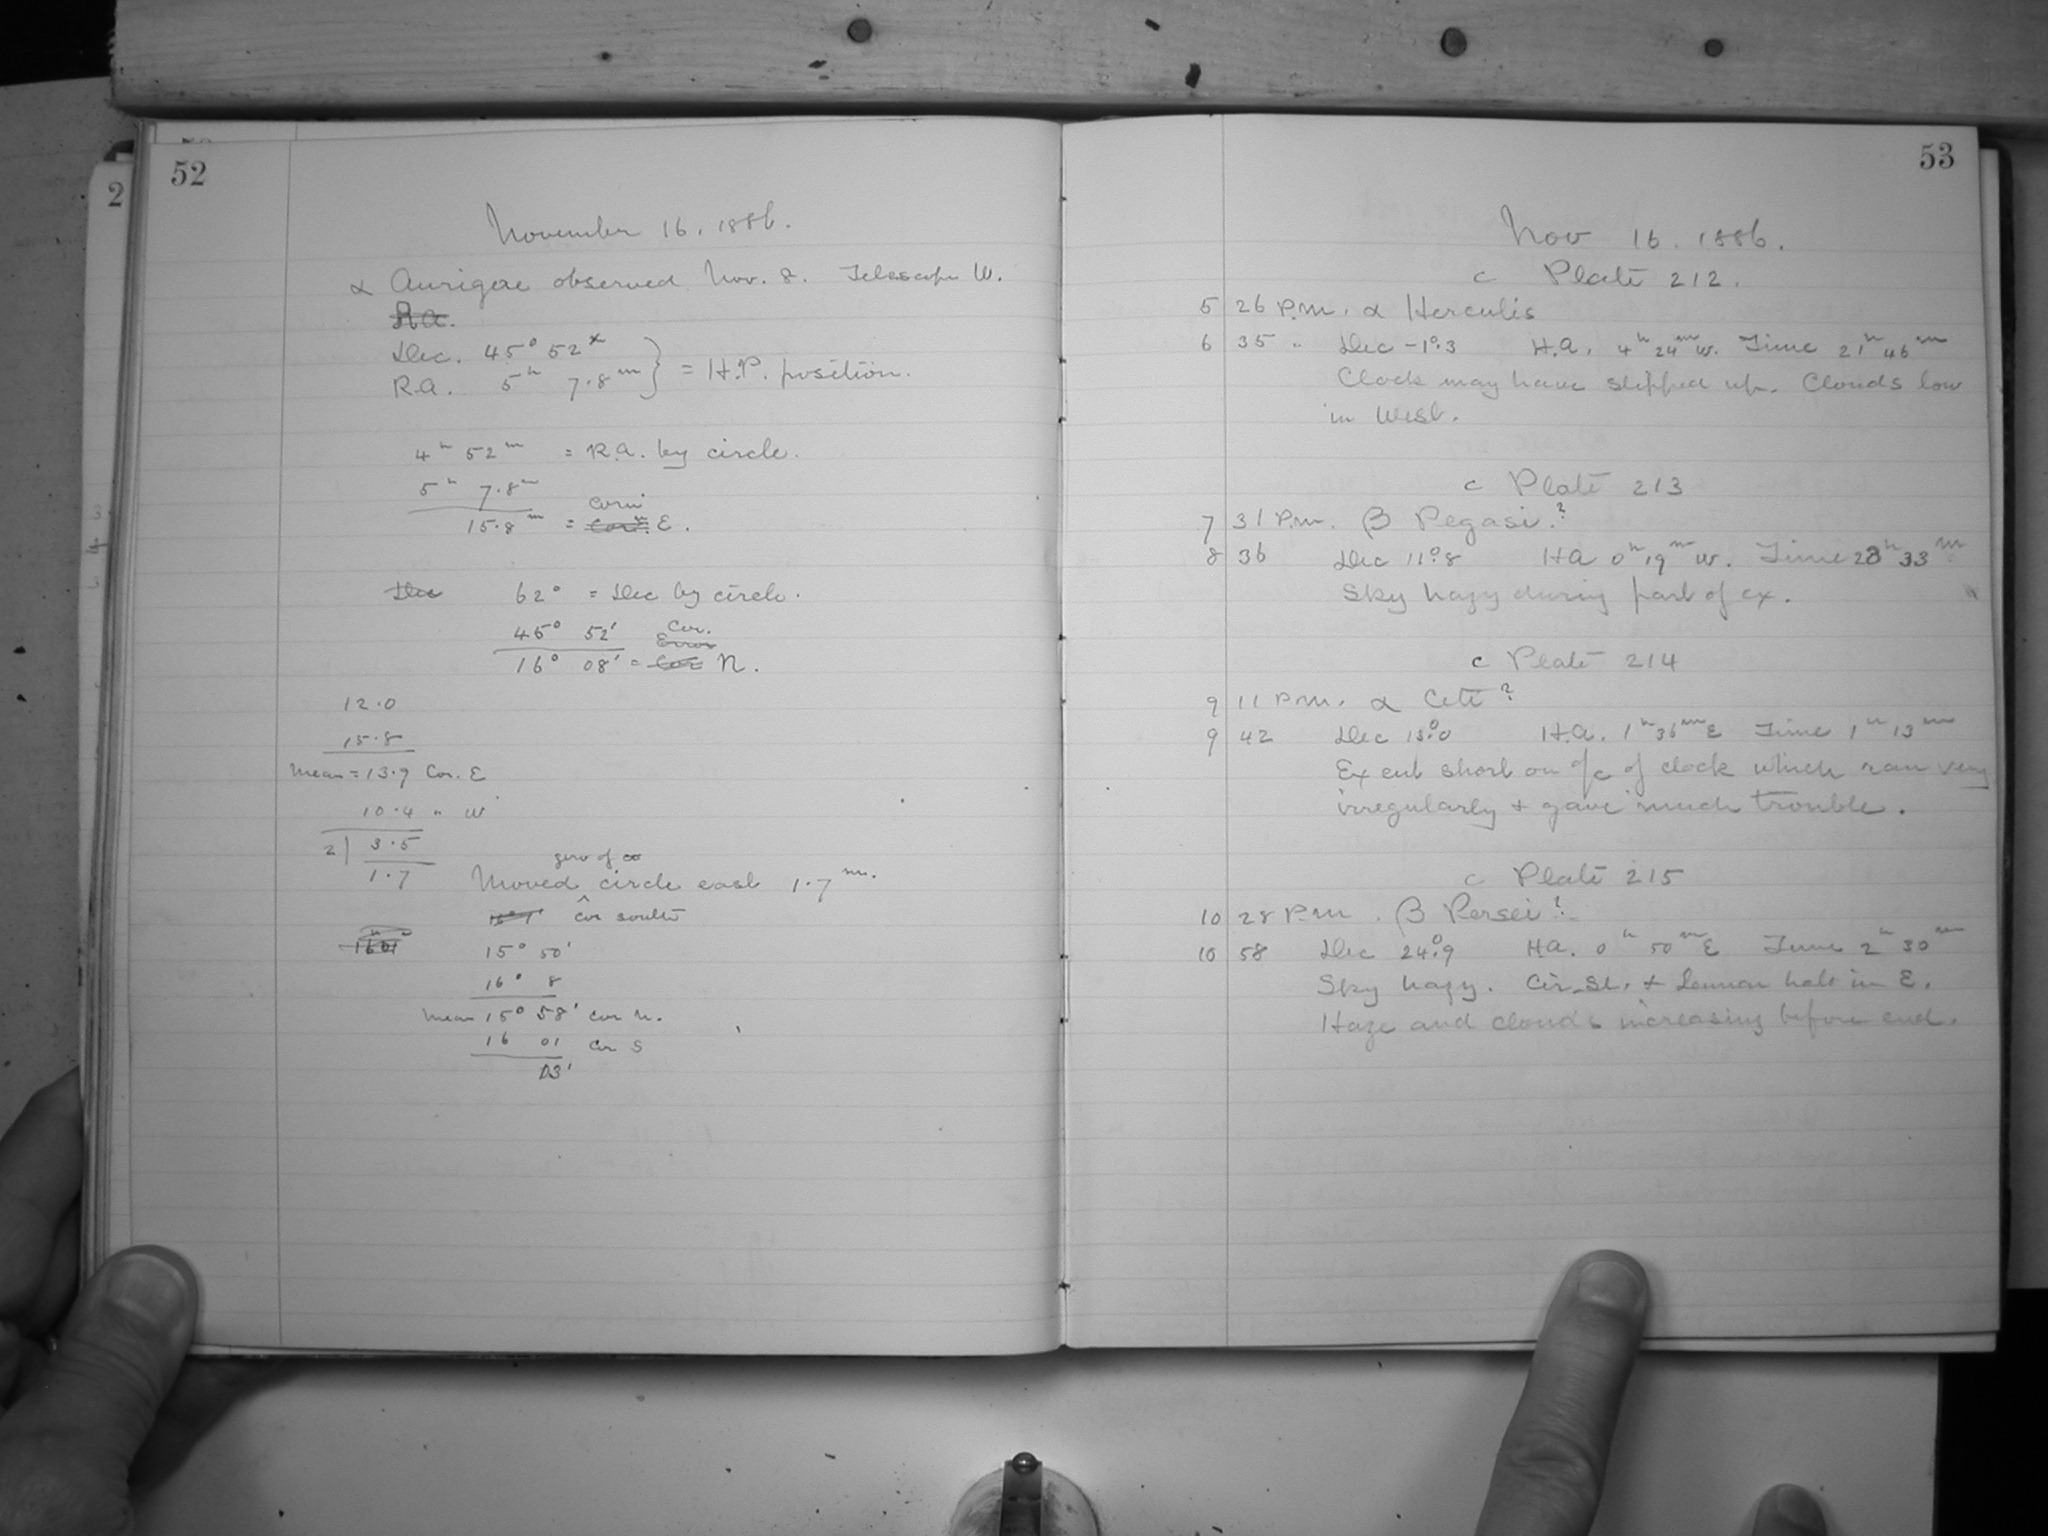 52
2
November 16, 1886.
α Aurigae observed Nov. 8. Telescope W.
R.a.
Dec. 45° 52'
R.a. 5h 7.8m } = H.P. position.
4h 52m = R.a. by circle.
5h 7.8m
corn
15.8m = Corn. E.
Dec 62° = Dec by circle.
45° 52' Cor.
Error
16° 08' = Cor N.
12.0
15.8
Mean = 13.9 Cor. E
10.4 " W
2| 3.5
1.7
zero of
Moved ^ circle east 1.7m.
Cor south
15° 50'
16° 8
Mean 15° 58' cor N.
16 01 Cor S
03'
53
Nov 16. 1886.
c Plate 212.
5 26 P.m. α Herculis
6 35 " Dec -1°.3 H.a. 4h 24m W. Time 21h 46m
Clock may have slipped up. Clouds low
in West.
c Plate 213
7 31 P.m. β Pegasi?
8 36 Dec 11°.8 Ha 0h 19m W. Time 23h 33m
Sky hazy during part of ex.
c Plate 214
9 11 P.m. α Ceti?
9 42 Dec 13°.0 H.a. 1h 36m E Time 1h 13m
Ex cut short on a/c of clock which ran very
irregularly + gave much trouble.
c Plate 215
10 28 P.m. β Persei?
10 58 Dec 24°.9 Ha. 0h 50m E Time 2h 30m
Sky hazy. Cir. St. + lunar halo in E.
Haze and clouds increasing before end.